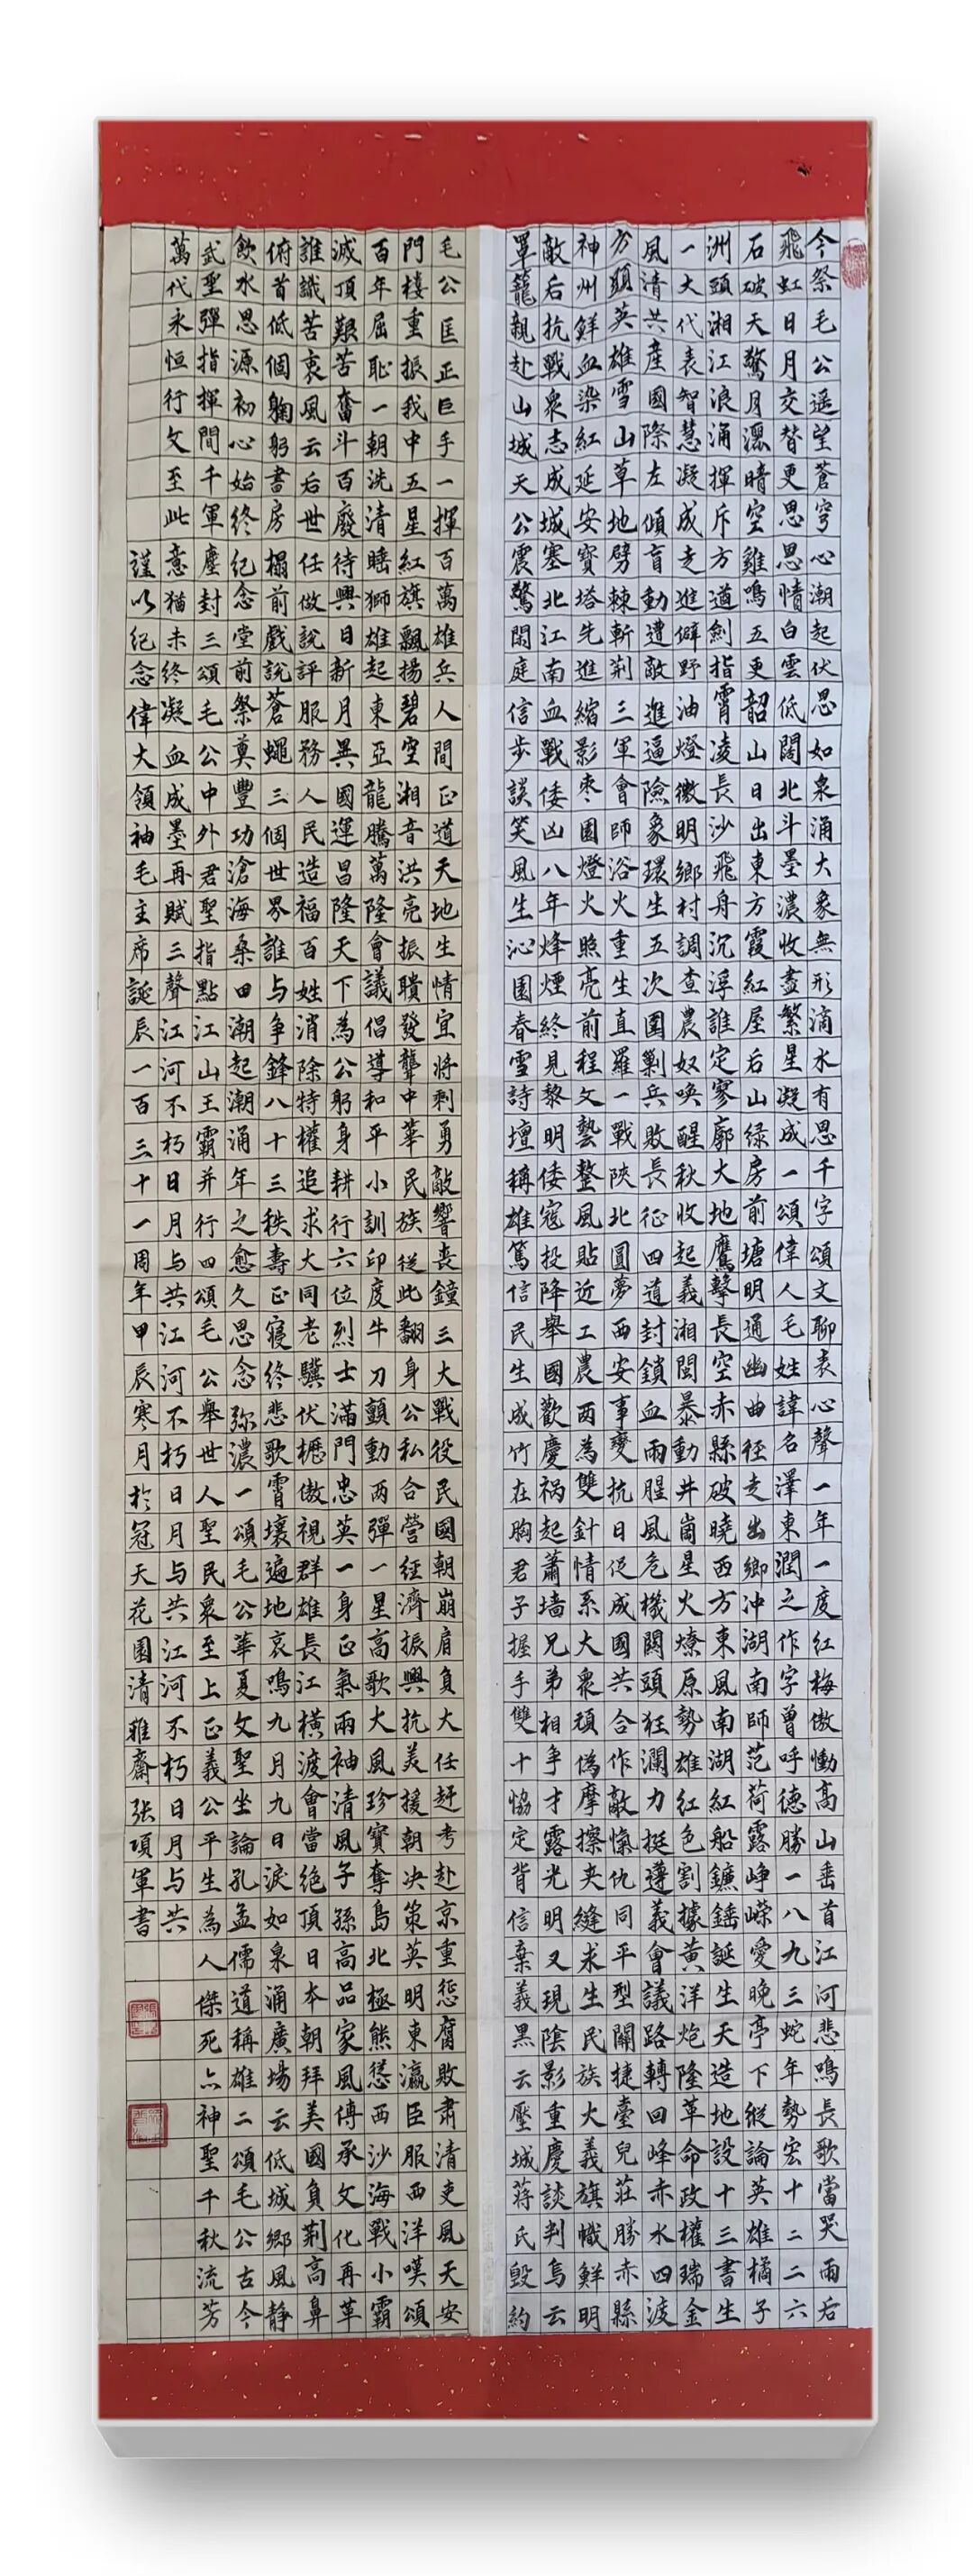 今祭毛公遥望蒼穹心潮起伏思如泉涌大象無形滴水有思千字頌文聊表心聲一年一度紅梅傲慟高山垂首江河悲鳴長歌當哭雨后
飛虹日月交替更思思情白雲低闊北斗墨濃收盡繁星凝成一頌偉人毛姓諱名澤東潤之作字曾呼德勝一八九三蛇年勢宏十二二六
石破天驚月濕暗空雞鳴五更韶山日出東方霞紅屋后山緑房前塘明通幽曲徑走出鄉冲湖南師范荷露峥嶸愛晚亭下縱論英雄橘子
洲頭湘江浪涌揮斥方遒劍指霄凌長沙飛舟沉浮誰定寥廓大地鷹擊長空赤縣破曉西方東風南湖紅船鐮錘誕生天造地設十三書生
一大代表智慧凝成走進僻野油燈微明鄉村調查農奴唤醒秋收起義湘閩暴動井崗星火燎原勢雄紅色割據黄洋炮隆革命政權瑞金
風清共産國際左傾盲動遭敵進逼險象環生五次圍剿兵敗長征四道封鎖血雨腥風危機關頭狂瀾力挺遵義會議路轉回峰赤水四渡
方顯英雄雪山草地劈棘斬荆三軍會師浴火重生直羅一戰陝北圓夢西安事變抗日促成國共合作敵愾仇同平型關捷臺兒莊勝赤縣
神州鮮血染紅延安寶塔先進縮影枣園燈火照亮前程文藝整風貼近工農两為雙針情系大衆頑偽摩擦夾縫求生民族大義旗幟鮮明
敵后抗戰衆志成城塞北江南血戰倭凶八年烽煙終見黎明倭寇投降舉國歡慶祸起蕭墙兄弟相争才露光明又現陰影重慶談判烏云
罩籠親赴山城天公震驚閑庭信步談笑風生沁園春雪詩壇稱雄篤信民生成竹在胸君子握手雙十協定背信棄義黑云壓城蒋氏毀約
毛公匡正巨手一揮百萬雄兵人間正道天地生情宜將剩勇敲響喪鐘三大戰役民國朝崩肩負大任赶考赴京重惩腐敗肃清吏風天安
門樓重振我中五星紅旗飄揚碧空湘音洪亮振聵發聾中華民族從此翻身公私合營經濟振興抗美援朝决策英明東瀛臣服西洋嘆頌
百年屈恥一朝洗清睡獅雄起東亞龍騰萬隆會議倡導和平小訓印度牛刀顫動两彈一星高歌大風珍寶奪島北極熊惩西沙海戰小霸
滅頂艱苦奮斗百廢待興日新月異國運昌隆天下為公躬身耕行六位烈士滿門忠英一身正氣兩袖清風子孫高品家風傳承文化再革
誰識苦衷風云后世任做說評服務人民造福百姓消除特權追求大同老驥伏櫪傲視群雄長江横渡會當絶頂日本朝拜美國負荆高鼻
俯首低個鞠躬書房榻前戲說蒼蠅三個世界誰与争鋒八十三秩壽正寝終悲歌霄壤遍地哀鳴九月九日淚如泉涌廣場云低城鄉風静
飲水思源初心始終紀念堂前祭奠豐功滄海桑田潮起潮涌年之愈久思念弥濃一頌毛公華夏文聖坐論孔孟儒道稱雄二頌毛公古今
武聖彈指揮間千軍塵封三頌毛公中外君聖指點江山王霸并行四頌毛公舉世人聖民衆至上正義公平生為人傑死亦神聖千秋流芳
萬代永恒行文至此意猶未終凝血成墨再賦三聲江河不朽日月与共江河不朽日月与共江河不朽日月与共
謹以紀念偉大領袖毛主席誕辰一百三十一周年甲辰寒月於冠天花園清雅齋张項軍書